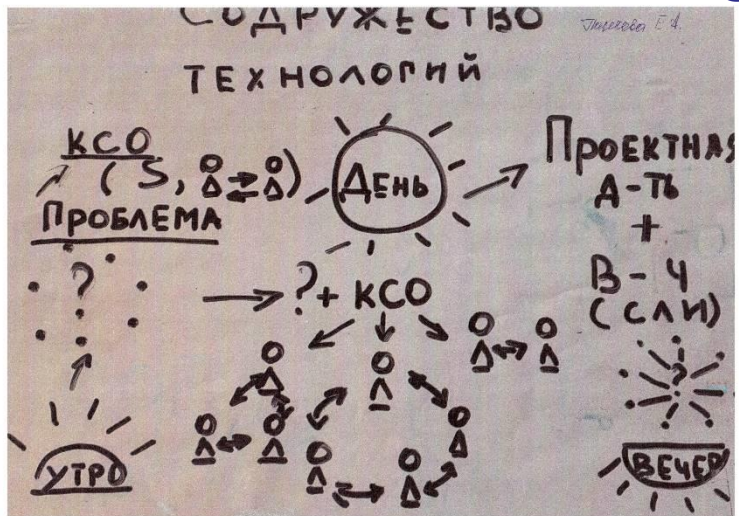 СОДРУЖЕСТВО
ТЕХНОЛОГИЙ
КСО
( S, )
ПРОБЛЕМА
?
УТРО
ДЕНЬ
? + КСО
ПРОЕКТНАЯ
Д-ТЬ
+
В - Ч
(СЛИ)
?
ВЕЧЕР